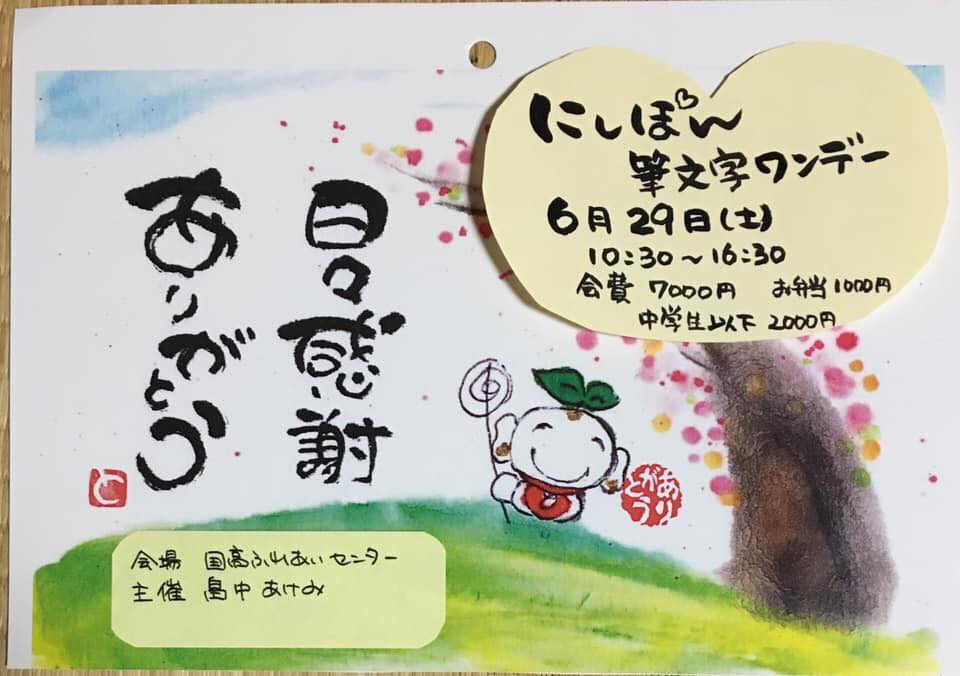 にしぽん
筆文字ワンデー
6月29日(土)
10:30～16:30
会費 7000円 お弁当1000円
中学生以下 2000円
日々感謝
ありがとう
と
ありがとう
会場 国高ふれあいセンター
主催 畠中あけみ